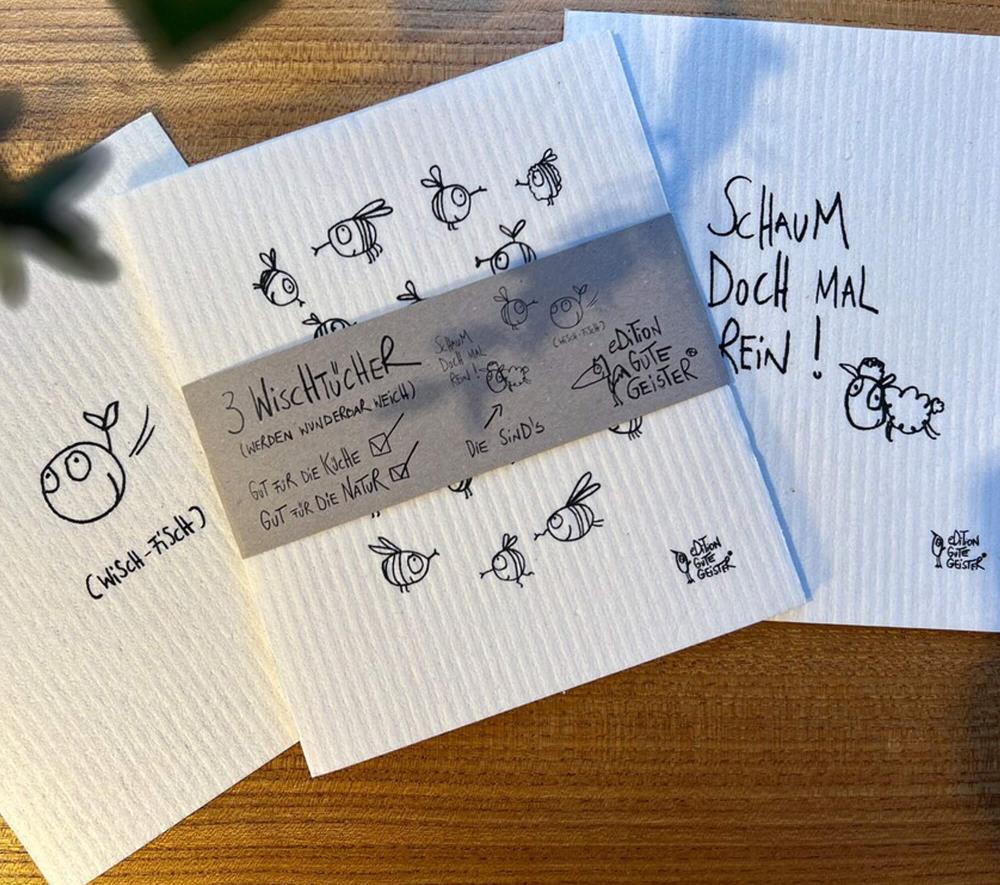 (WiSCH-FiSCH)
3 WiSCHTÜCHER
(WERDEN WUNDERBAR WEICH)
GUT FÜR DiE KÜCHE
GUT FÜR DiE NATUR
SCHAUM
DOCH MAL
REiN!
DiE SiND'S
(WiSCH-FiSCH)
eDiTiON
GUTE
GEiSTER®
eDiTiON
GUTE
GEiSTER®
SCHAUM
DOCH MAL
REiN!
eDiTiON
GUTE
GEiSTER®